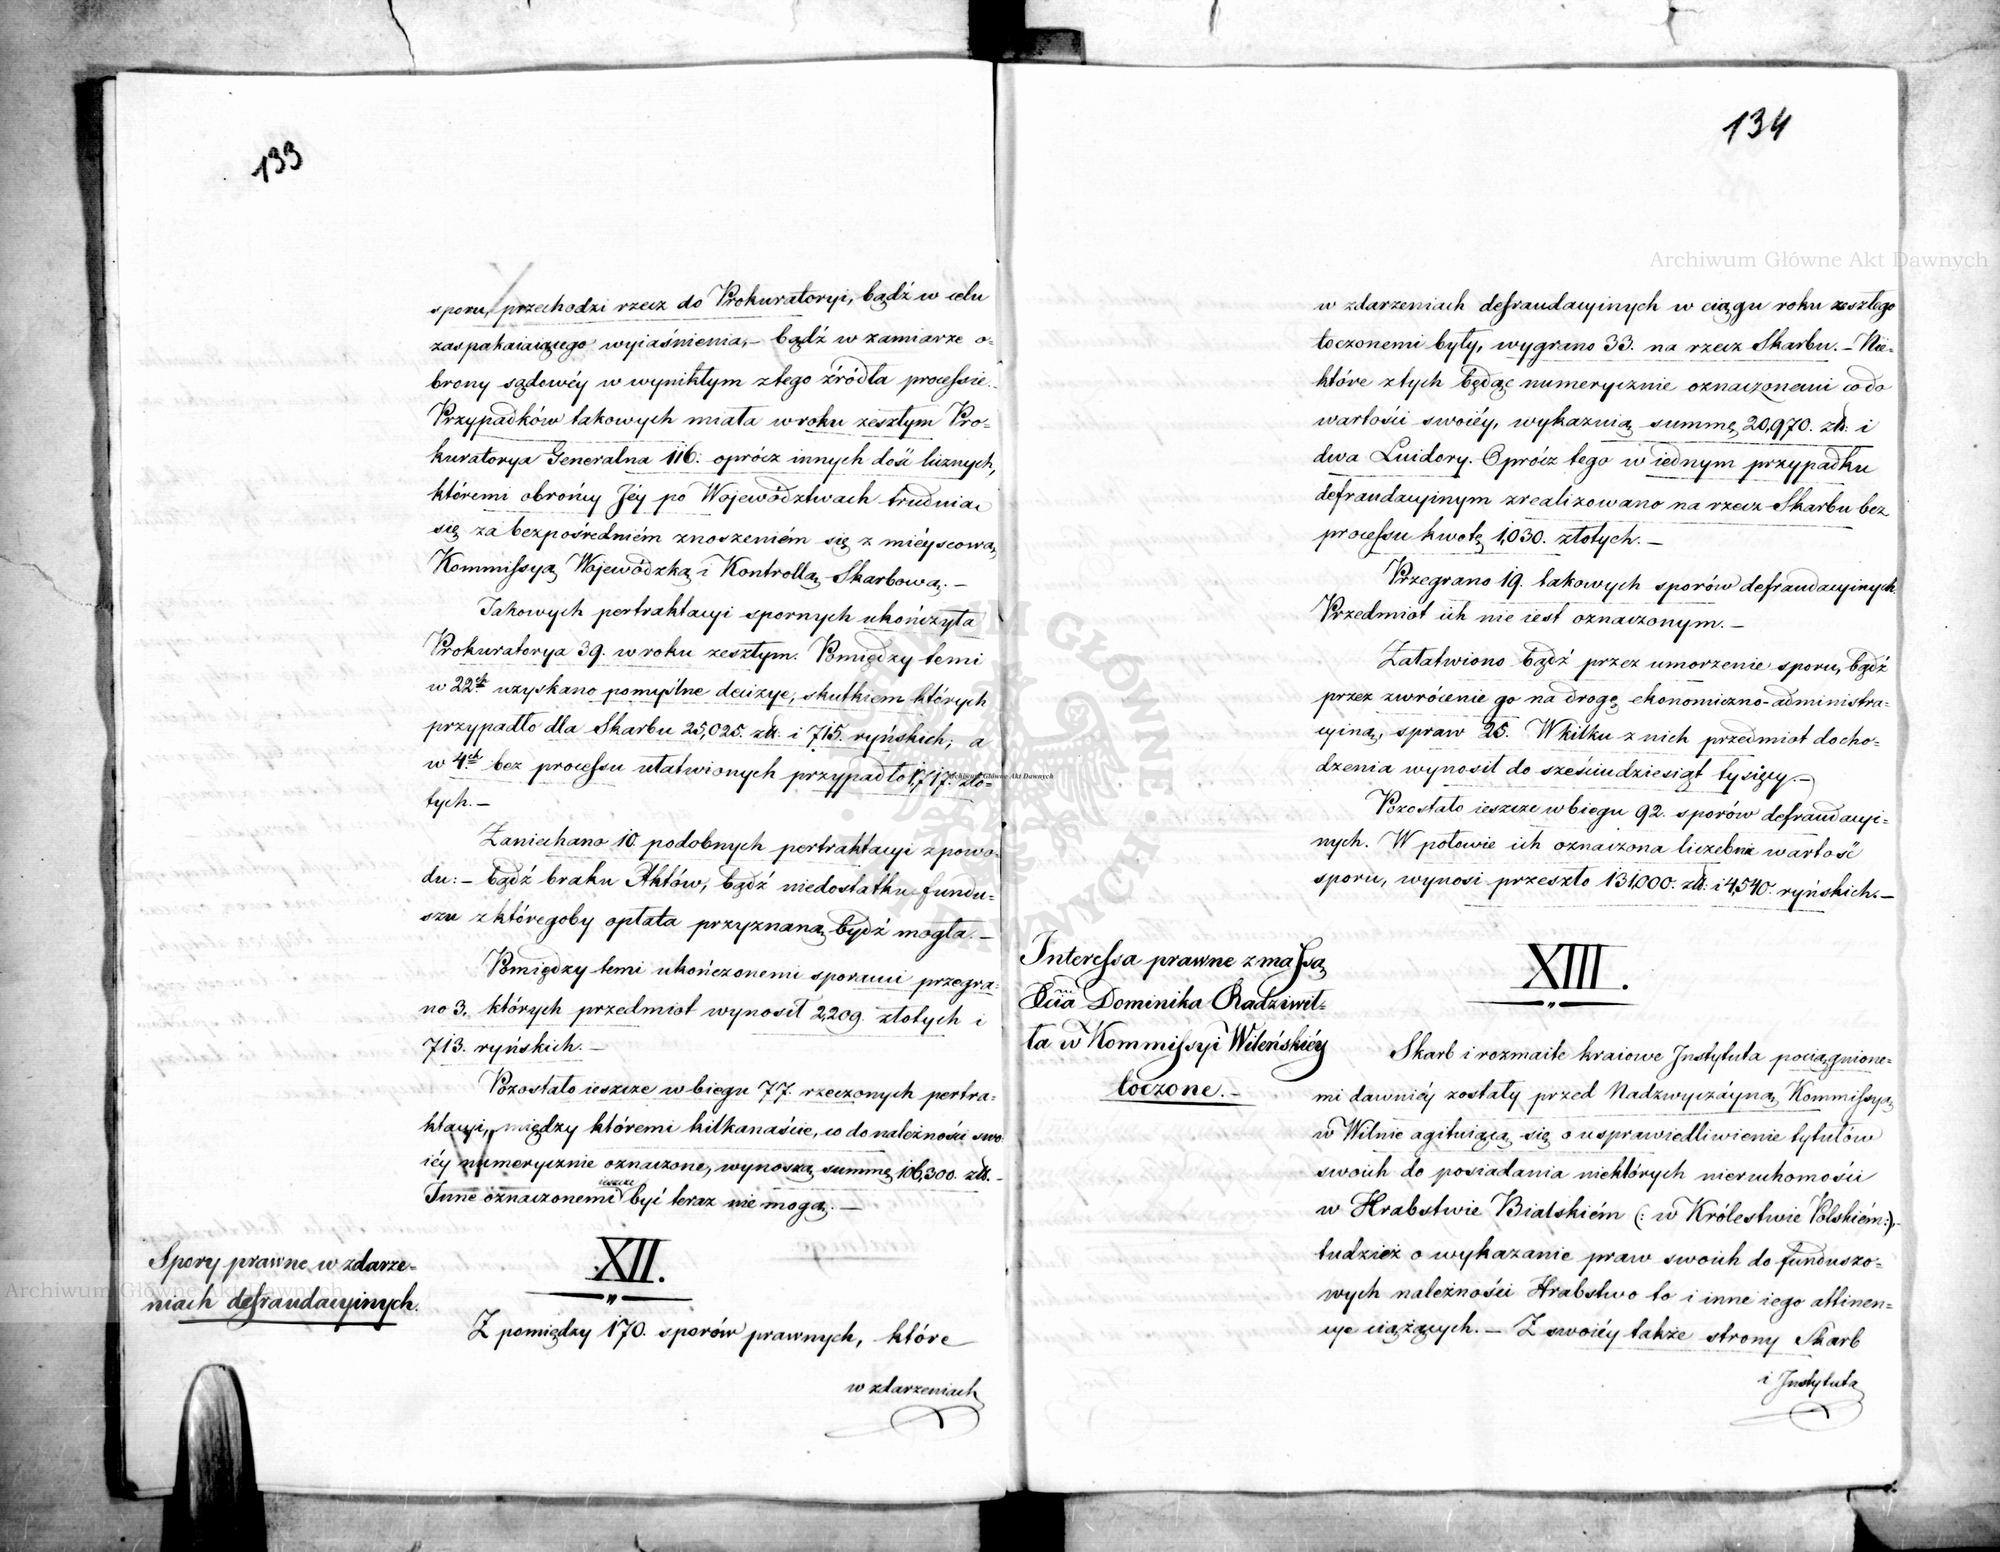 133
sporu, przechodzi rzecz do Prokuratoryi, bądź w celu
zaspakaiaiącego wyiaśnienia, – bądź w zamiarze o-
brony sądowéy w wynikłym z tego źródła processie.
Przypadków takowych miała w roku zeszłym Pro-
kuratorya Generalna 116: oprócz innych dość licznych,
któremi obrońcy Jéy po Województwach trudnią
się za bezpośredniém znoszeniém się z mieyscową
Kommissyą Wojewódzką i Kontrollą Skarbową. –
Takowych pertraktacyi spornych ukończyła
Prokuratorya 39. w roku zeszłym. Pomiędzy temi
w 22ch uzyskano pomyślne decizye, skutkiem których
przypadło dla Skarbu 25,025. zł: i 715. ryńskich; a
w 4ch bez processu ułatwionych przypadło 1,717. zło-
tych. –
Zaniechano 10 podobnych pertraktacyi z powo-
du: – bądź braku Aktów, bądź niedostatku fundu-
szu z któregoby opłata przyznaną bydź mogła. –
Pomiędzy temi ukończonemi sporami przegra-
no 3, których przedmiot wynosił 2,209. złotych i
713. ryńskich. –
Pozostało ieszcze w biegu 77. rzeczonych pertra-
ktacyi, między któremi kilkanaście, co do należności swo-
iéy numerycznie oznaczone, wynoszą summę 106,300. zł. –
ieszcze
Inne oznaczonemi być teraz nie mogą. –
Spory prawne w zdarze-
niach defraudacyinych.
XII.
Z pomiędzy 170. sporów prawnych, które
w zdarzeniach
134
w zdarzeniach defraudacyinych w ciągu roku zeszłego
toczonemi były, wygrano 33. na rzecz Skarbu. – Nie-
które z tych będąc numerycznie oznaczonemi co do
wartości swoiéy, wykazuią summę 20,970. zł: i
dwa Luidory. Oprócz tego w iednym przypadku
defraudacyinym zrealizowano na rzecz Skarbu bez
processu kwotę 1,030. złotych. –
Przegrano 19. takowych sporów defraudacyinych.
Przedmiot ich nie iest oznaczonym. –
Załatwiono bądź przez umorzenie sporu, bądź
przez zwrócenie go na drogę ekonomiczno-administra-
cyiną, spraw 25. W kilku z nich przedmiot docho-
dzenia wynosił do sześciudziesiąt tysięcy. –
Pozostało ieszcze w biegu 92. sporów defraudacyi-
nych. W połowie ich oznaczona liczebnie wartość
sporu, wynosi przeszło 131,000. zł: i 4,540. ryńskich. –
Interessa prawne z massą
Xcia Dominika Radziwił-
ła w Kommissyi Wileńskiéy
toczone. –
XIII.
Skarb i rozmaite kraiowe Instytuta pociągnione-
mi dawniéy zostały przed Nadzwyczayną Kommissyą
w Wilnie agituiącą się o usprawiedliwienie tytułów
swoich do posiadania niektórych nieruchomości
w Hrabstwie Bialskiém (: w Królestwie Polskiém :), –
tudzież o wykazanie praw swoich do funduszo-
wych należności Hrabstwo to i inne iego attinen-
cye ciążących. – Z swoiéy także strony Skarb
i Instytuta
Archiwum Główne Akt Dawnych
Archiwum Główne Akt Dawnych
Archiwum Główne Akt Dawnych